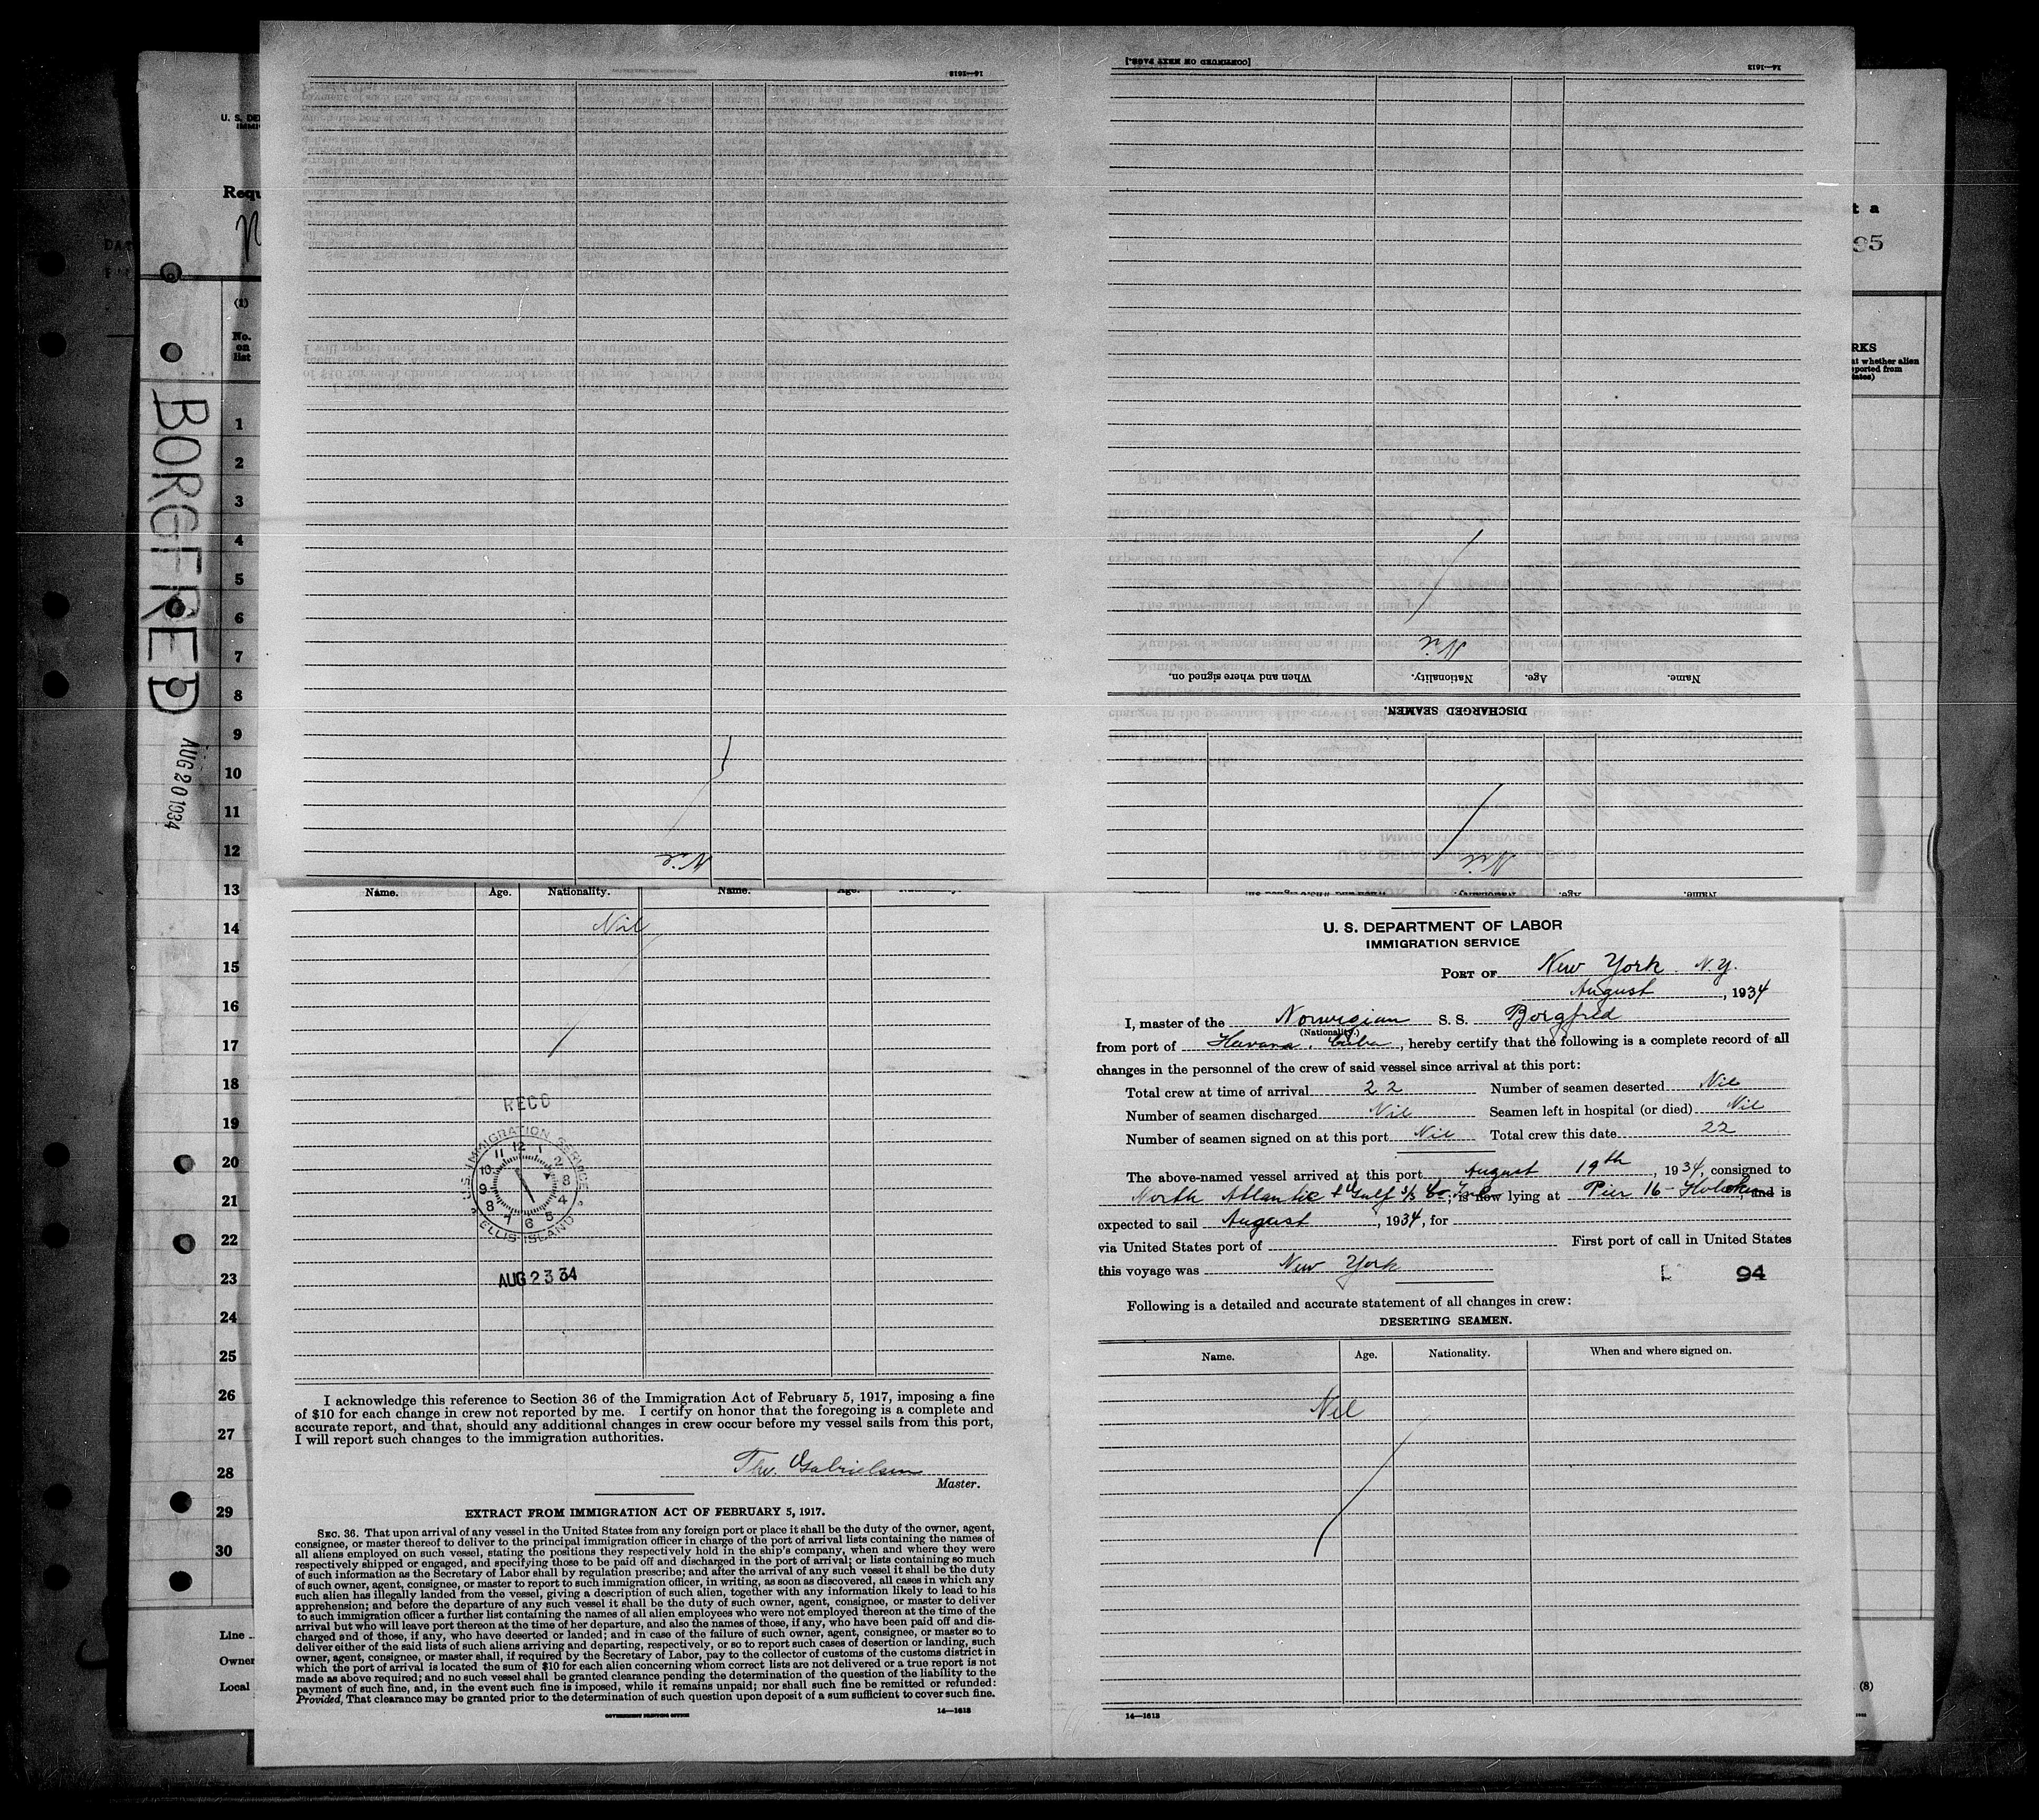 U. S. DE
IMMI
Requ
(1)
No.
on
list
1
2
3
4
5
6
7
8
9
10
11
12
13
14
15
16
17
18
19
20
21
22
23
24
25
26
27
28
29
30
Line
Owner
Local
BORGFRED
AUG 20 1934
t a
95
RKS
at whether alien
eported from
tates)
(8)
14—1613
Nil
[CONTINUED ON NEXT PAGE.]
14—1613
Nil
When and where signed on. Nationality. Age. Name.
DISCHARGED SEAMEN.
Nil
Nationality. Age. Name.
Name. Age. Nationality. Name. Age.
Nil
RECD
U.S. IMMIGRATION SERVICE
ELLIS ISLAND
12 1 2 3 4 5 6 7 8 9 10 11
AUG 23 34
I acknowledge this reference to Section 36 of the Immigration Act of February 5, 1917, imposing a fine
of $10 for each change in crew not reported by me. I certify on honor that the foregoing is a complete and
accurate report, and that, should any additional changes in crew occur before my vessel sails from this port,
I will report such changes to the immigration authorities.
Gabrielsen
Master.
EXTRACT FROM IMMIGRATION ACT OF FEBRUARY 5, 1917.
SEC. 36. That upon arrival of any vessel in the United States from any foreign port or place it shall be the duty of the owner, agent,
consignee, or master thereof to deliver to the principal immigration officer in charge of the port of arrival lists containing the names of
all aliens employed on such vessel, stating the positions they respectively hold in the ship's company, when and where they were
respectively shipped or engaged, and specifying those to be paid off and discharged in the port of arrival; or lists containing so much
of such information as the Secretary of Labor shall by regulation prescribe; and after the arrival of any such vessel it shall be the duty
of such owner, agent, consignee, or master to report to such immigration officer, in writing, as soon as discovered, all cases in which any
such alien has illegally landed from the vessel, giving a description of such alien, together with any information likely to lead to his
apprehension; and before the departure of any such vessel it shall be the duty of such owner, agent, consignee, or master to deliver
to such immigration officer a further list containing the names of all alien employees who were not employed thereon at the time of the
arrival but who will leave port thereon at the time of her departure, and also the names of those, if any, who have been paid off and dis-
charged and of those, if any, who have deserted or landed; and in case of the failure of such owner, agent, consignee, or master so to
deliver either of the said lists of such aliens arriving and departing, respectively, or so to report such cases of desertion or landing, such
owner, agent, consignee, or master shall, if required by the Secretary of Labor, pay to the collector of customs of the customs district in
which the port of arrival is located the sum of $10 for each alien concerning whom correct lists are not delivered or a true report is not
made as above required; and no such vessel shall be granted clearance pending the determination of the question of the liability to the
payment of such fine, and, in the event such fine is imposed, while it remains unpaid; nor shall such fine be remitted or refunded:
Provided, That clearance may be granted prior to the determination of such question upon deposit of a sum sufficient to cover such fine.
GOVERNMENT PRINTING OFFICE 14—1613
U. S. DEPARTMENT OF LABOR
IMMIGRATION SERVICE
PORT OF New York. N.Y.
August, 1934
I, master of the Norwegian S. S. Borgfred
(Nationality.)
from port of Havana, Cuba, hereby certify that the following is a complete record of all
changes in the personnel of the crew of said vessel since arrival at this port:
Total crew at time of arrival 22 Number of seamen deserted Nil
Number of seamen discharged Nil Seamen left in hospital (or died) Nil
Number of seamen signed on at this port Nil Total crew this date 22
The above-named vessel arrived at this port August 19th, 1934, consigned to
North Atlantic & Gulf S/S Co. Inc, is now lying at Pier 16 - Hoboken and is
expected to sail August, 1934, for
via United States port of First port of call in United States
this voyage was New York
94
Following is a detailed and accurate statement of all changes in crew:
DESERTING SEAMEN.
Name. Age. Nationality. When and where signed on.
Nil
14—1613